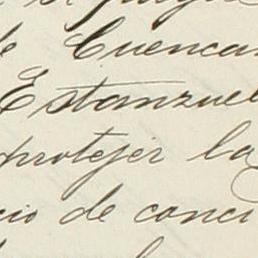 de Cuenca
Estanzuel
protejer la
cio de conci